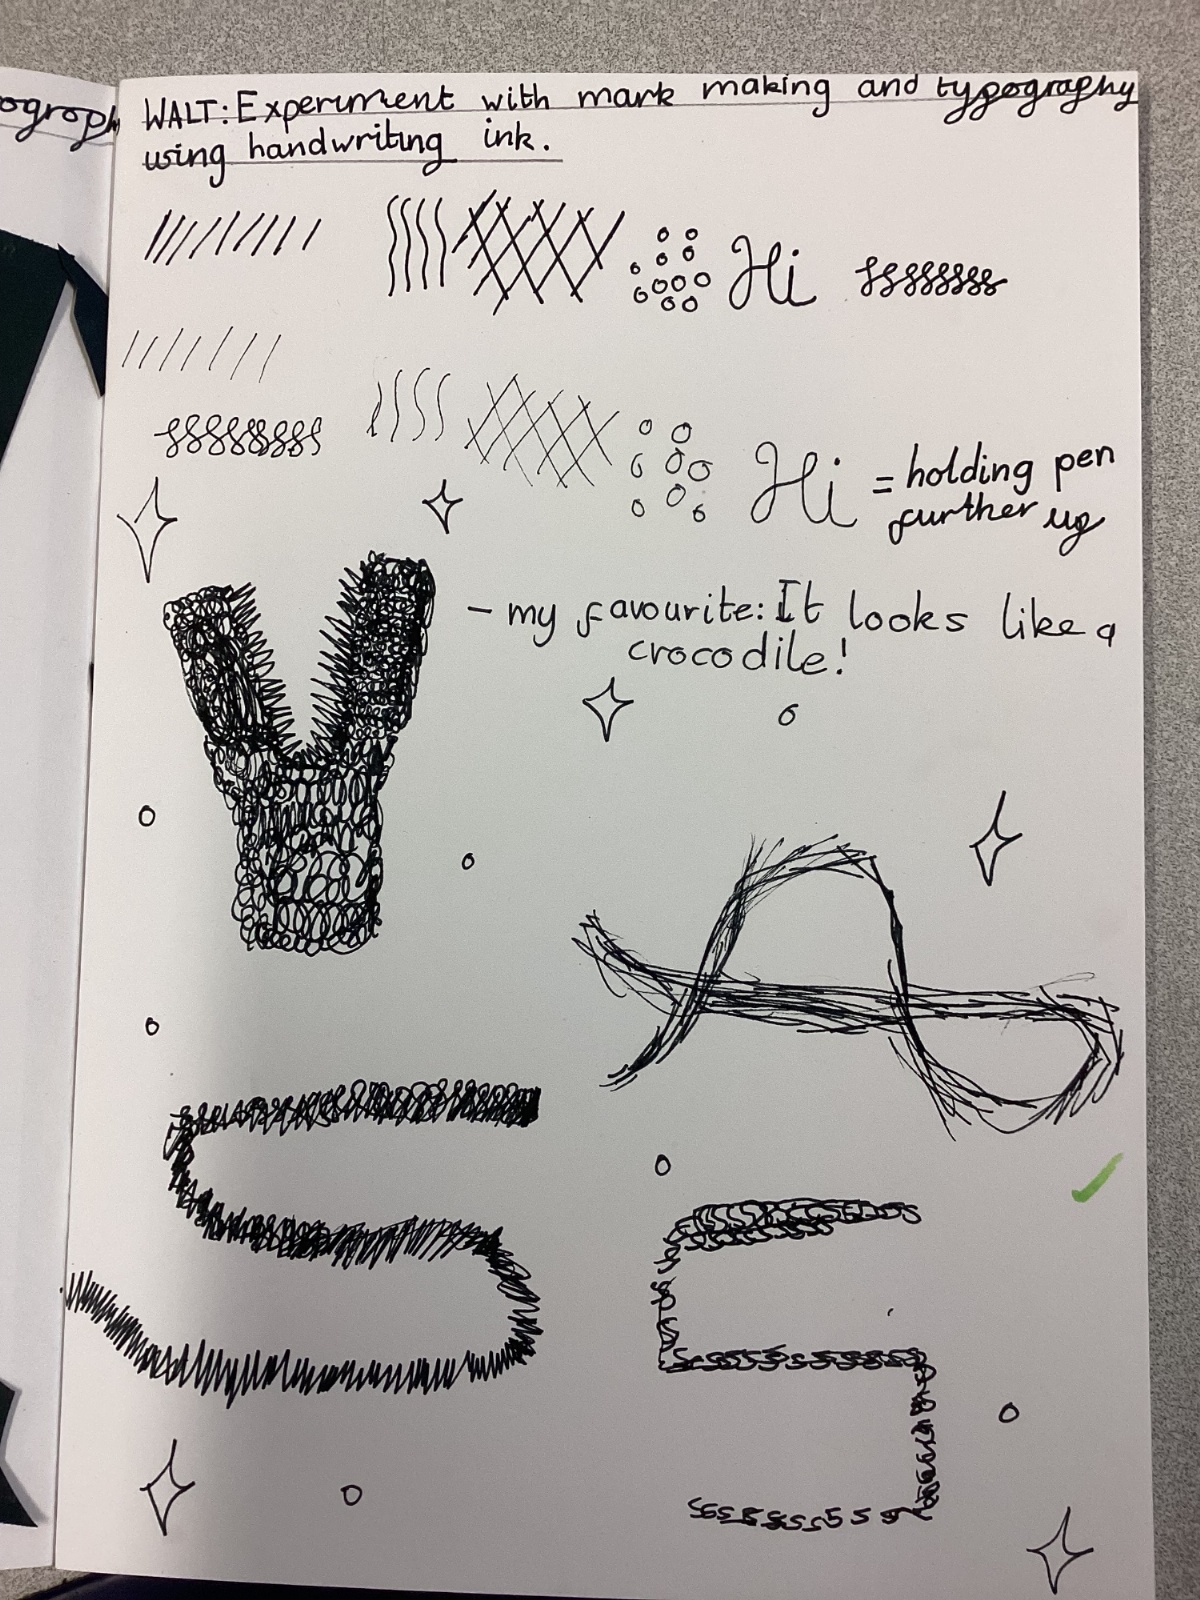 ograph
WALT: Experiment with mark making and typography
using handwriting ink.
Hi
Hi = holding pen
further up
- my favourite: It looks like a
crocodile!
Y
A
S
S